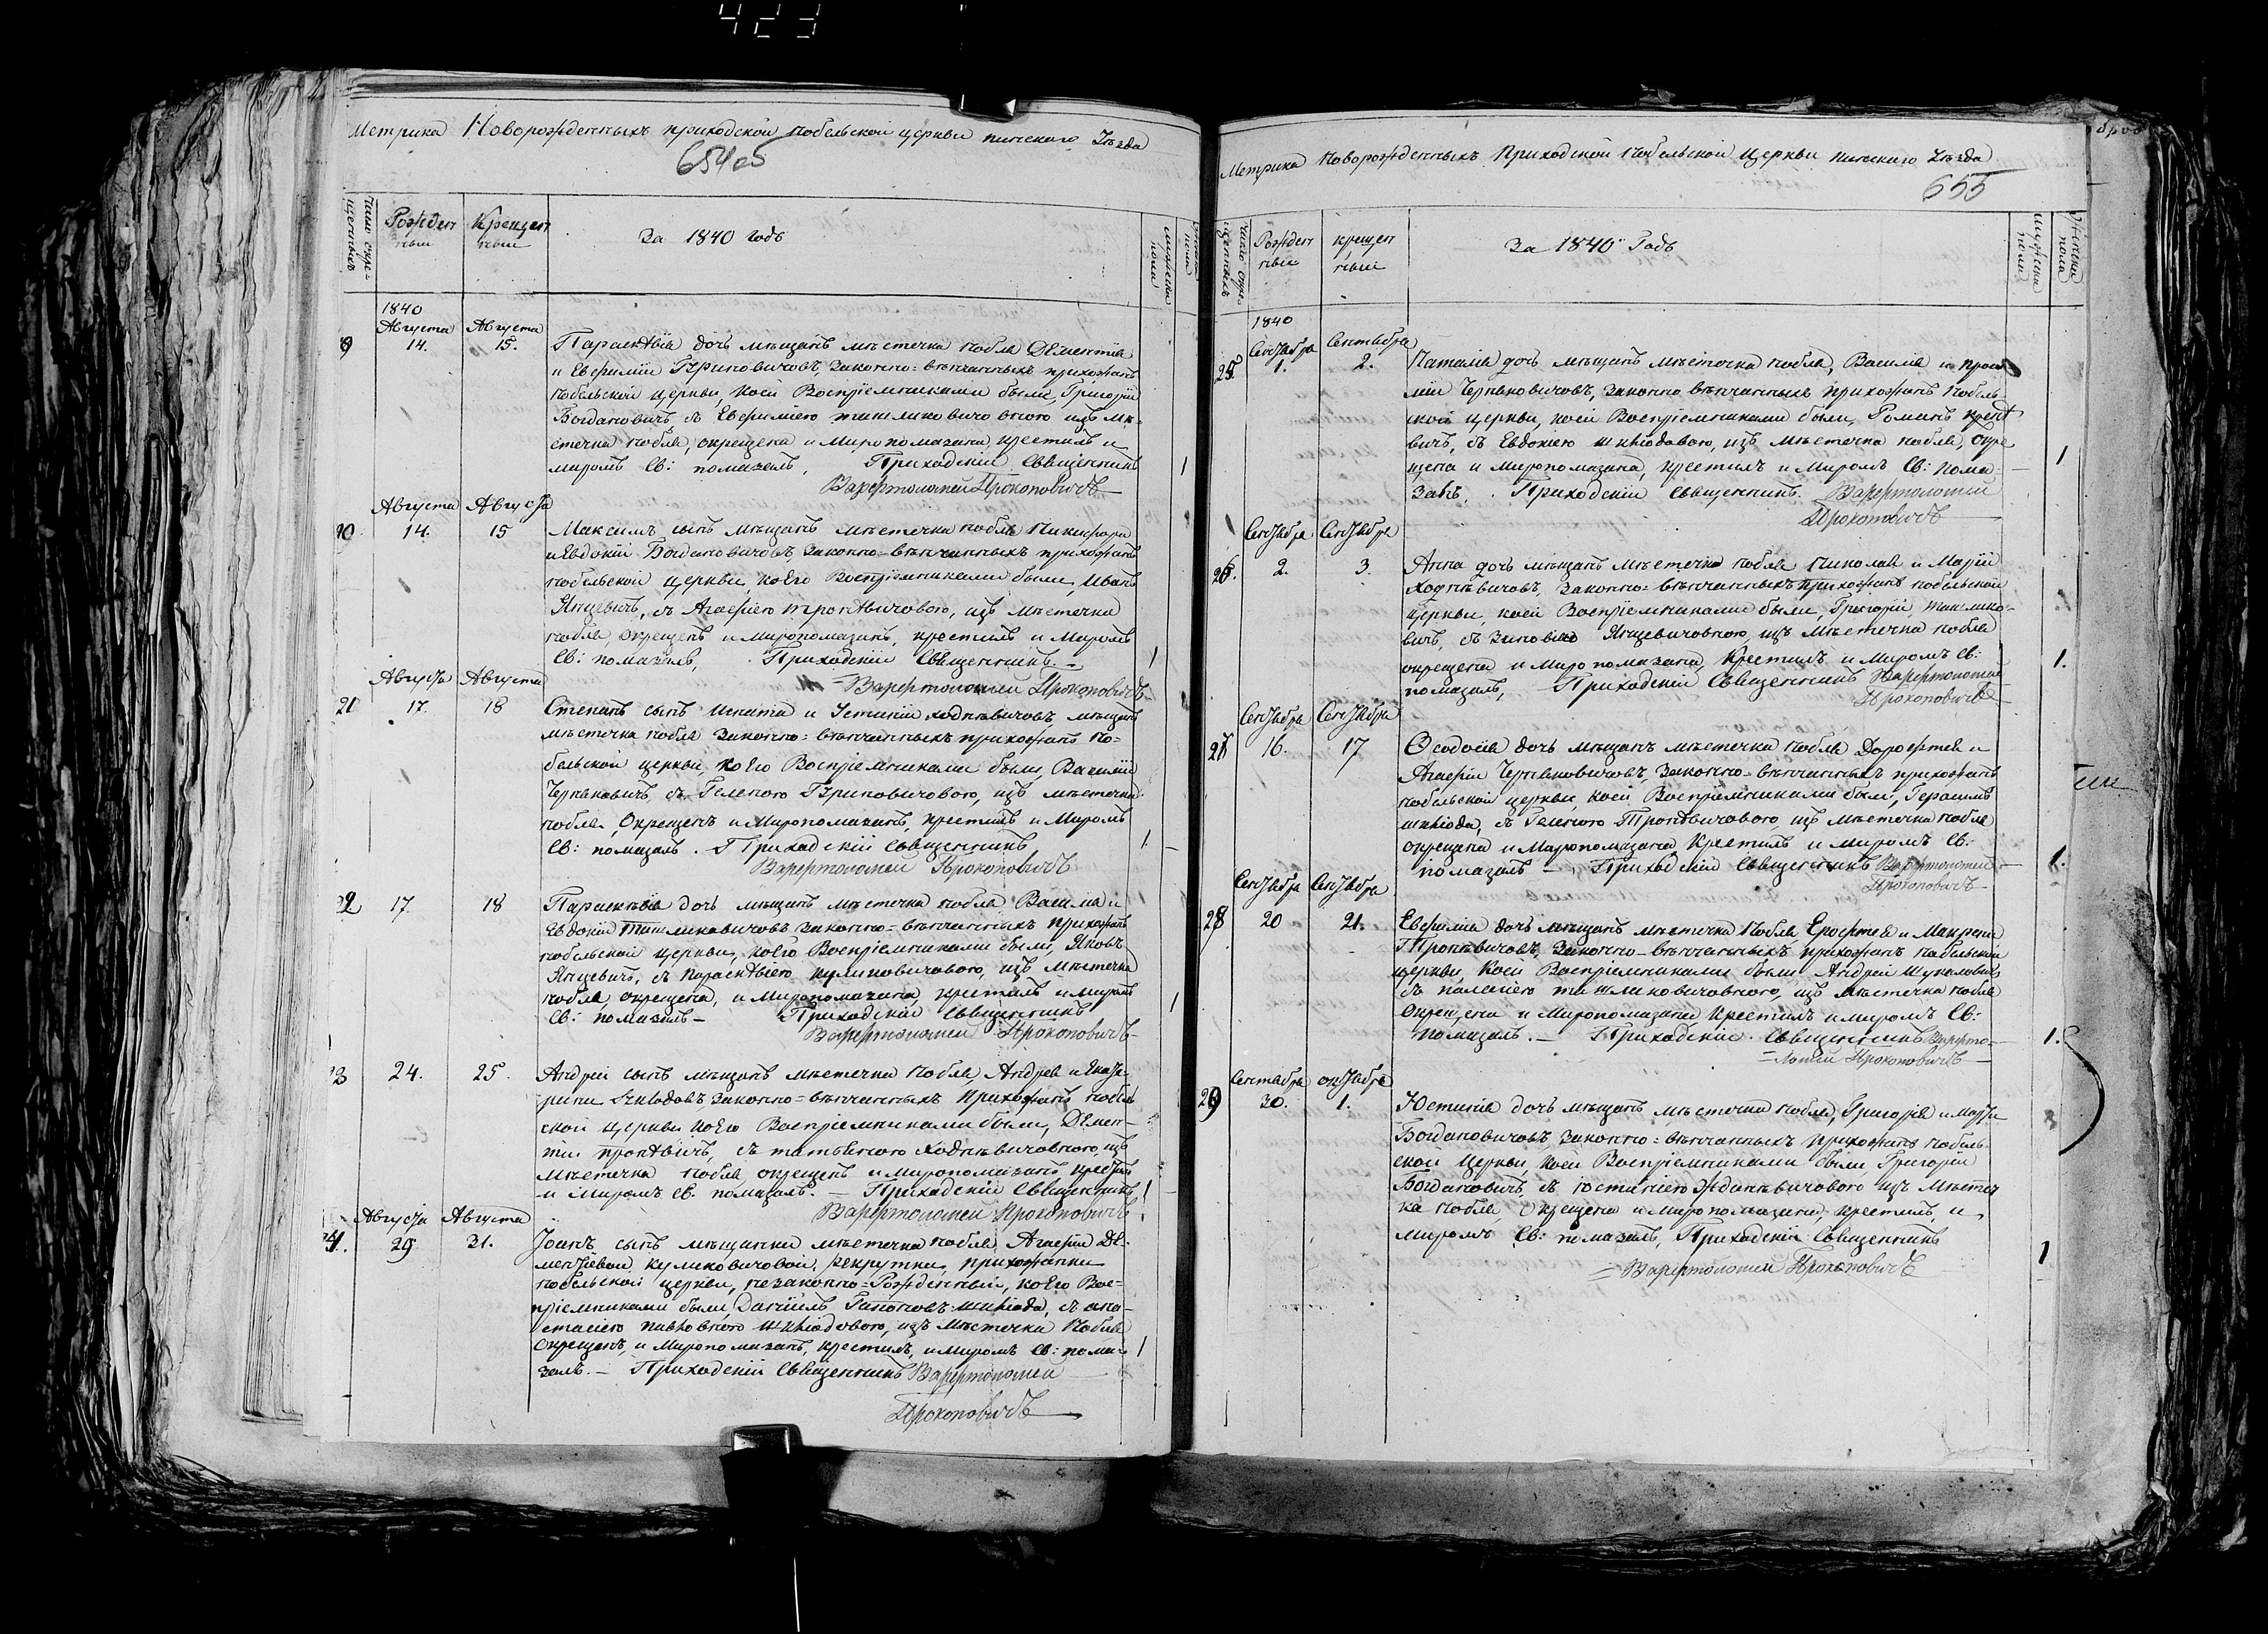 423
Метрика Новорожденныхъ приходской Нобельской церкви пинского Уезда
654 об
число окре-
щенныхъ
Рожден
ныи
Крещен
ныи
За 1840 годъ
мужеска
пола
1840
Августа Августа
19 14. 15. Параскевія дочь мещанъ местечка Нобля Дементія
и Евфиміи Гриновичовъ, Законно=венчанныхъ прихожанъ
Нобельской церкви, коей Воспріемниками были, Григорій
Богдановичъ съ Евфиміею тишлико вичо вною изъ ме-
стечка Нобля, окрещена и Миро помазана, крестилъ и
миромъ Св: помазалъ, Приходскій Священникъ 1
Варфтоломей Прокоповичъ
Августа Августа
20 14. 15 Максимъ сынъ мещанъ местечка Нобля Никифора
и Евдокіи Богдановичовъ, Законно=венчанныхъ прихожанъ
Нобельской церкви, коего Воспріемниками были, Иванъ
Янцевичъ, съ Агафіею троневичовою, изъ местечка
Нобля, окрещенъ и Миропомазанъ, крестилъ и Миромъ
Св: помазалъ, Приходскій Священникъ. 1
Варфтоломей Прокоповичъ
Августа Августа
21 17. 18 Степанъ сынъ Игната и Устиніи ходневичовъ мещанъ
местечка Нобля Законно=венчанныхъ прихожанъ Но=
бельской церкви, коего Воспріемниками были, Василій
Черняковичъ, съ Геленою Гриновичовою, изъ местечка
Нобля, Окрещенъ и Миропомазанъ, крестилъ и Миромъ
Св: помазалъ. Приходскій Священникъ 1.
Варфтоломей Прокоповичъ
22 17. 18 Параскевія дочь мещанъ местечка Нобля Васила и
Евдокіи Тишликовичовъ Законно=венчанныхъ Прихожанъ
Нобельской церкви, коего Воспріемниками были, Яковъ
Янцевичъ, съ Параскевіею куликовичовою, изъ местечка
Нобля, окрещена, и Миропомазана, крестилъ и Миромъ 1
Св: помазалъ— Приходскій Священникъ
Варфтоломей Прокоповичъ
23 24. 25. Андрей сынъ мещанъ местечка Нобля, Андрея и Екате-
рины Законно=венчанныхъ Прихожанъ Нобель
ской церкви коего Воспріемниками были, Демен-
тій проневичъ, съ татьяною Ходневичовною, изъ
местечка Нобля, окрещенъ и миропомазанъ крестилъ
и Миромъ св. помазалъ. — Приходскій Священникъ 1
Варфтоломей Прокоповичъ
Августа Августа
24. 29 31. Іоанъ сынъ мещанки местечка Нобля Агафіи Де-
ментіевой куликовичовой, рекрутки, прихожанки
Нобельской церкви, незаконно=Рожденный, коего Вос=
пріемниками были Даніилъ Гапоновъ шкіода, съ ана-
стасіею павловною шкіодовою, изъ местечка Нобля
Окрещенъ, и Миропомазанъ, крестилъ, и миромъ Св: пома- 1
залъ. — Приходскій Священникъ Варфтоломей
Прокоповичъ
Метрика Новорожденныхъ Приходской Нобельской Церкви пинского Уезда
655
число окре-
щенныхъ
Рожден
ныи
крещен
ныи
За 1840 Годъ
мужеска
пола
Женска
пола
1840
Сентября Сентября
25. 1. 2. Наталія дочь мещанъ местечка Нобля, Василія и
міи Черняковичовъ, Законно венчанныхъ прихожанъ Нобель
ской церкви, коей Воспріемниками были, Романъ
вичъ, съ Евдокіею шкіодовою, изъ местечка Нобля, Окре
щена и Миропомазана, крестилъ и Миромъ Св: пома= 1
залъ, Приходскій Священникъ. Варфтоломей
Прокоповичъ
Сентября Сентября
26. 2. 3. Анна дочь мещанъ местечка Нобля Николая и Маріи
Ходневичовъ, Законно=венчанныхъ прихожанъ Нобельской
церкви, коей Воспріемниками были, Григорій тишлико-
вичъ, съ Зиновіею Янцевичовною, изъ местечка Нобля
окрещена и Миро помазана, Крестилъ и Миромъ Св: 1.
помазалъ, — Приходскій Священникъ Варфтоломей
Прокоповичъ
Сентября Сентября
27 16. 17 Феодосія дочь мещанъ местечка Нобля Дорофтея и
Агафіи Черняковичовъ, Законно=венчанныхъ прихожанъ
Нобельской церкви, коей Воспріемниками были, Герасимъ
шкіода, съ Геленою Троневичовою, изъ местечка Нобля
окрещена и Миропомазана Крестилъ и Миромъ Св:
помазалъ — Приходскій Священникъ Варфтоломей 1.
Прокоповичъ
Сентября Сентября
28 20 21. Евфимія дочь мещанъ местечка Нобля Ерофтея и Макрены
Троневичовъ, Законно=венчанныхъ прихожанъ Нобельской
церкви, коей Воспріемниками были Андрей Шукаловичъ
съ пелагіею тишликовичовною, изъ местечка Нобля
Окрещена и Миропомазана Крестилъ и миромъ Св:
помазалъ. — Приходскій Священникъ Варфто- 1.
=ломей Прокоповичъ
Сентября октября
29 30. 1. Юстинія дочь мещанъ местечка Нобля, Григорія и Марфы
Богдановичовъ Законно=венчанныхъ прихожанъ Нобель-
ской Церкви, коей Воспріемниками были, Григорій
Богдановичъ, съ Юстиніею Жданевичовою изъ Местеч
ка Нобля, Окрещена и миропомазана, крестилъ, и
миромъ Св: помазалъ, Приходскій Священникъ 1
Варфтоломей Прокоповичъ